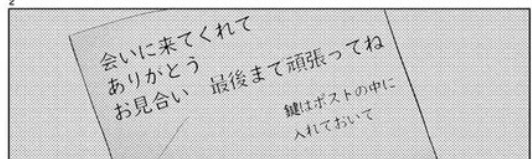 2
会いに来てくれて
ありがとう
お見合い　最後まで頑張ってね
鍵はポストの中に
入れておいて